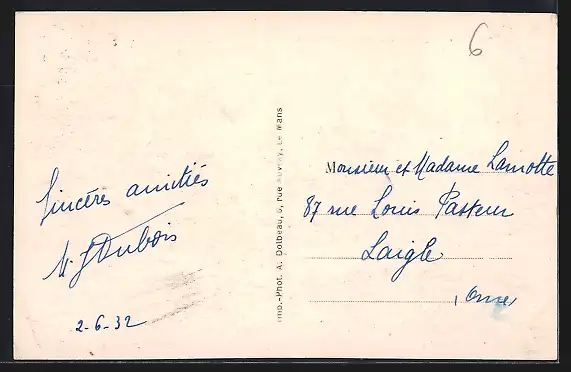 6
Sincères amitiés
Dubois
2-6-32
Imp.-Phot. A. Dolbeau, rue Le Mans
Monsieur et Madame Lamotte
87 rue Louis Pasteur
Laigle
Orne